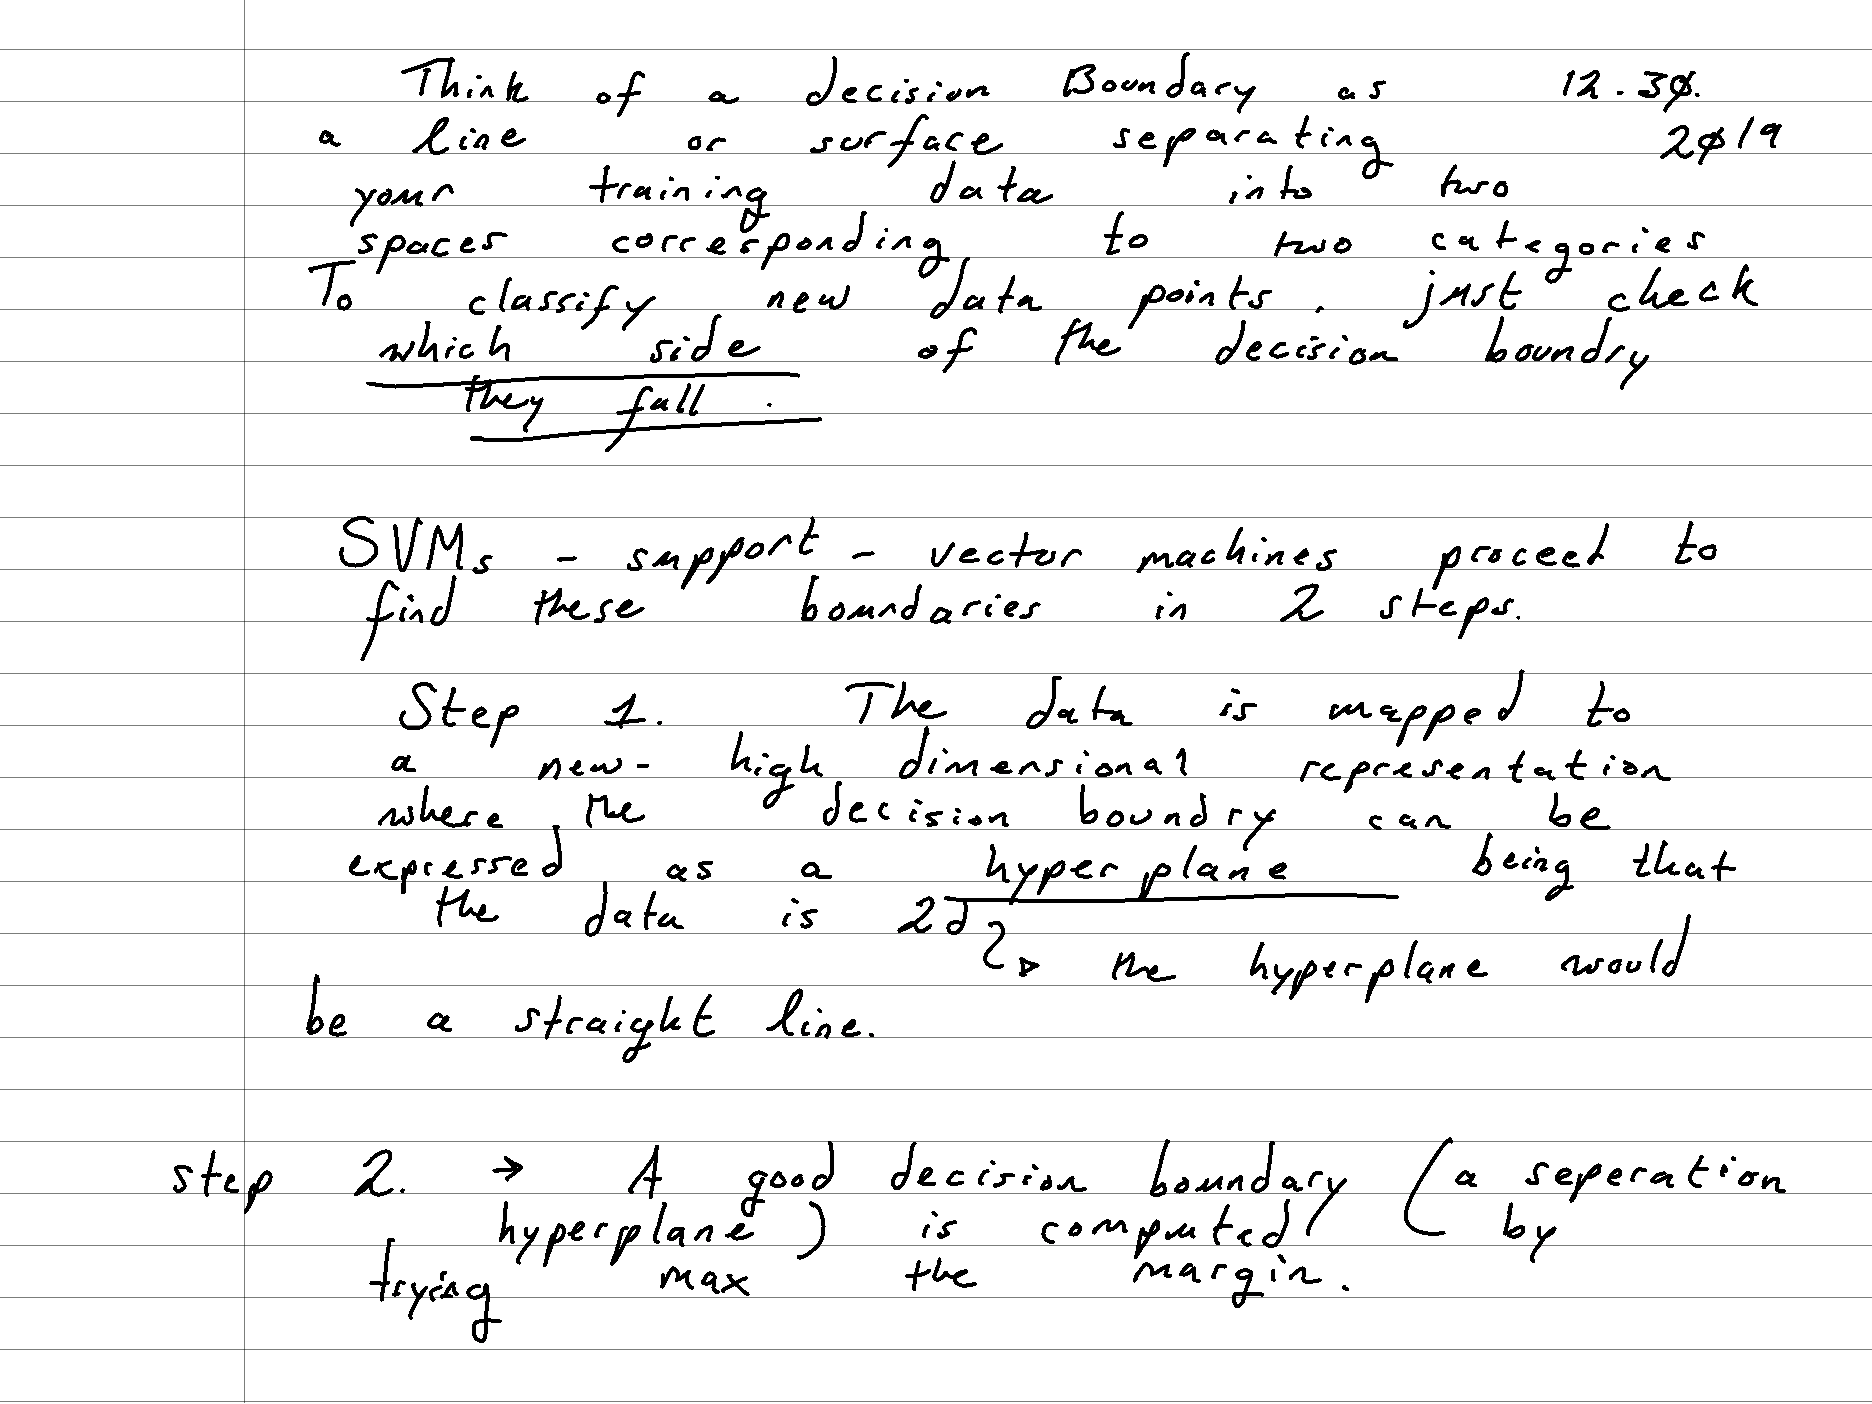 Think of a decision Boundary as 12.30.
a line or surface separating 2019
your training data into two
spaces corresponding to two categories
To classify new data points, just check
which side of the decision boundry
they fall.
SVMs - support - vector machines proceed to
find these boundaries in 2 steps.
Step 1. The data is mapped to
a new- high dimensional representation
where the decision boundry can be
expressed as a hyperplane being that
the data is 2d
the hyperplane would
be a straight line.
step 2. → A good decision boundary (a seperation
hyperplane) is computed by
trying max the margin.